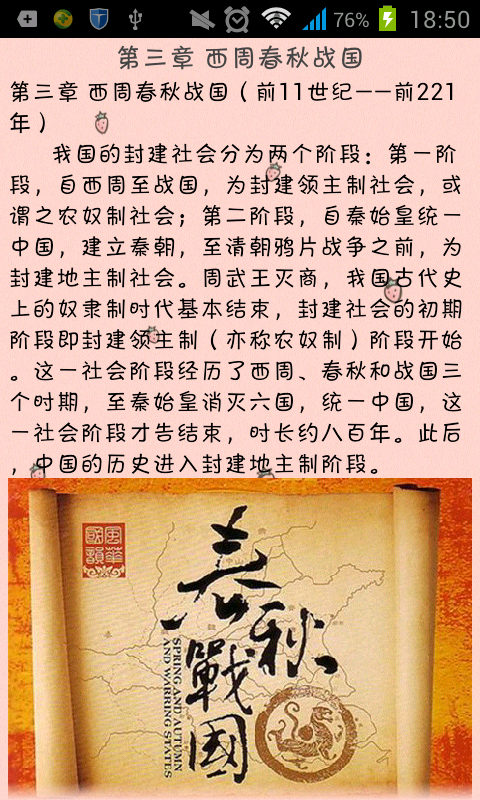 76% 18:50
第三章 西周春秋战国
第三章 西周春秋战国（前11世纪——前221
年）
我国的封建社会分为两个阶段：第一阶
段，自西周至战国，为封建领主制社会，或
谓之农奴制社会；第二阶段，自秦始皇统一
中国，建立秦朝，至清朝鸦片战争之前，为
封建地主制社会。周武王灭商，我国古代史
上的奴隶制时代基本结束，封建社会的初期
阶段即封建领主制（亦称农奴制）阶段开始
。这一社会阶段经历了西周、春秋和战国三
个时期，至秦始皇消灭六国，统一中国，这
一社会阶段才告结束，时长约八百年。此后
，中国的历史进入封建地主制阶段。
春秋
戰國
SPRING AND AUTUMN
AND WARRING STATES
風華
國韻